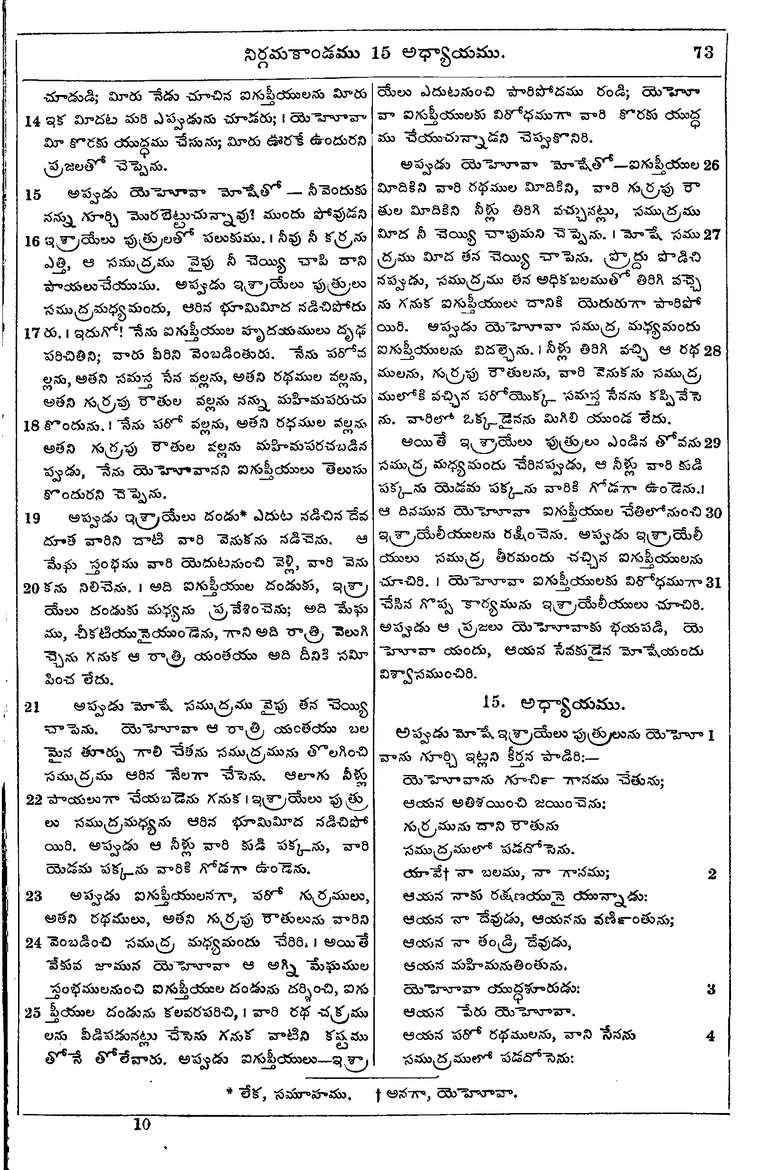 నిర్గమకాండము 15 అధ్యాయము. 73
చూడుడి; మీరు నేడు చూచిన ఐగుప్తీయులను మీరు
14 ఇక మీదట మరి ఎప్పుడును చూడరు; । యెహోవా
మీ కొరకు యుద్ధము చేసును; మీరు ఊరకే ఉందురని
ప్రజలతో చెప్పెను.
15 అప్పుడు యెహోవా మోషేతో — నీవెందుకు
నన్ను గూర్చి మొరలెట్టుచున్నావు? ముందు పోవుడని
16 ఇశ్రాయేలు పుత్రులతో పలుకుము. । నీవు నీ కర్రను
ఎత్తి, ఆ సముద్రము వైపు నీ చెయ్యి చాపి దాని
పాయలుచేయుము. అప్పుడు ఇశ్రాయేలు పుత్రులు
సముద్రమధ్యమందు, ఆరిన భూమిమీద నడిచిపోదు
17 రు. । ఇదుగో! నేను ఐగుప్తీయుల హృదయములు దృఢ
పరిచితిని; వారు వీరిని వెంబడింతురు. నేను పరోవ
ల్లను, అతని సమస్త సేన వల్లను, అతని రథముల వల్లను,
అతని గుర్రపు రౌతుల వల్లను నన్ను మహిమపరుచు
18 కొందును. । నేను పరో వల్లను, అతని రధముల వల్లను
అతని గుర్రపు రౌతుల వల్లను మహిమపరచబడిన
ప్పుడు, నేను యెహోవానని ఐగుప్తీయులు తెలుసు
కొందురని చెప్పెను.
19 అప్పుడు ఇశ్రాయేలు దండు* ఎదుట నడిచిన దేవ
దూత వారిని దాటి వారి వెనుకను నడిచెను. ఆ
మేఘ స్తంభము వారి యెదుటనుంచి వెళ్లి, వారి వెను
20 కను నిలిచెను. । అది ఐగుప్తీయుల దండుకు, ఇశ్రా
యేలు దండుకు మధ్యను ప్రవేశించెను; అది మేఘ
ము, చీకటియునైయుండెను, గాని అది రాత్రి వెలుగి
చ్చెను గనుక ఆ రాత్రి యంతయు అది దీనికి సమీ
పించ లేదు.
21 అప్పుడు మోషే సముద్రము వైపు తన చెయ్యి
చాపెను. యెహోవా ఆ రాత్రి యంతయు బల
మైన తూర్పు గాలి చేతను సముద్రమును తొలగించి
సముద్రము ఆరిన నేలగా చేసెను. ఆలాగు నీళ్లు
22 పాయలుగా చేయబడెను గనుక । ఇశ్రాయేలు పుత్రు
లు సముద్రమధ్యను ఆరిన భూమిమీద నడిచిపో
యిరి. అప్పుడు ఆ నీళ్లు వారి కుడి పక్కను, వారి
యెడమ పక్కను వారికి గోడగా ఉండెను.
23 అప్పుడు ఐగుప్తీయులనగా, పరో గుర్రములు,
అతని రథములు, అతని గుర్రపు రౌతులును వారిని
24 వెంబడించి సముద్ర మధ్యమందు చేరిరి. । అయితే
వేకువ జామున యెహోవా ఆ అగ్ని మేఘముల
స్తంభములనుంచి ఐగుప్తీయుల దండును దర్శించి, ఐగు
25 ప్తీయుల దండును కలవరపరిచి, । వారి రథ చక్రము
లను వీడిపడునట్లు చేసెను గనుక వాటిని కష్టము
తోనే తోలేవారు. అప్పుడు ఐగుప్తీయులు—ఇశ్రా
యేలు ఎదుటనుంచి పారిపోదము రండి; యెహో
వా ఐగుప్తీయులకు విరోధముగా వారి కొరకు యుద్ధ
ము చేయుచున్నాడని చెప్పుకొనిరి.
అప్పుడు యెహోవా మోషేతో—ఐగుప్తీయుల 26
మీదికిని వారి రథముల మీదికిని, వారి గుర్రపు రౌ
తుల మీదికిని నీళ్లు తిరిగి వచ్చునట్లు, సముద్రము
మీద నీ చెయ్యి చాపుమని చెప్పెను. । మోషే సము 27
ద్రము మీద తన చెయ్యి చాపెను. ప్రొద్దు పొడిచి
నప్పుడు, సముద్రము తన అధికబలముతో తిరిగి వచ్చె
ను గనుక ఐగుప్తీయులు దానికి యెదురుగా పారిపో
యిరి. అప్పుడు యెహోవా సముద్ర మధ్యమందు
ఐగుప్తీయులను విదల్చెను. । నీళ్లు తిరిగి వచ్చి ఆ రథ 28
ములను, గుర్రపు రౌతులను, వారి వెనుకను సముద్ర
ములోకి వచ్చిన పరోయొక్క సమస్త సేనను కప్పివేసె
ను. వారిలో ఒక్కడైనను మిగిలి యుండ లేదు.
అయితే ఇశ్రాయేలు పుత్రులు ఎండిన తోవను 29
సముద్ర మధ్యమందు చేరినప్పుడు, ఆ నీళ్లు వారి కుడి
పక్కను యెడమ పక్కను వారికి గోడగా ఉండెను. ।
ఆ దినమున యెహోవా ఐగుప్తీయుల చేతిలోనుంచి 30
ఇశ్రాయేలీయులను రక్షించెను. అప్పుడు ఇశ్రాయేలీ
యులు సముద్ర తీరమందు చచ్చిన ఐగుప్తీయులను
చూచిరి. । యెహోవా ఐగుప్తీయులకు విరోధముగా 31
చేసిన గొప్ప కార్యమును ఇశ్రాయేలీయులు చూచిరి.
అప్పుడు ఆ ప్రజలు యెహోవాకు భయపడి, యె
హోవా యందు, ఆయన సేవకుడైన మోషేయందు
విశ్వాసముంచిరి.
15. అధ్యాయము.
అప్పుడు మోషే ఇశ్రాయేలు పుత్రులును యెహో 1
వాను గూర్చి ఇట్లని కీర్తన పాడిరి:—
యెహోవాను గూర్చి గానము చేతును;
ఆయన అతిశయించి జయించెను:
గుర్రమును దాని రౌతును
సముద్రములో పడదోసెను.
యావే† నా బలము, నా గానము; 2
ఆయన నాకు రక్షణయునై యున్నాడు:
ఆయన నా దేవుడు, ఆయనను వర్ణింతును;
ఆయన నా తండ్రి దేవుడు,
ఆయన మహిమనుతింతును.
యెహోవా యుద్ధశూరుడు: 3
ఆయన పేరు యెహోవా.
ఆయన పరో రథములను, వాని సేనను 4
సముద్రములో పడదోసెను:
* లేక, సమూహము. † అనగా, యెహోవా.
10